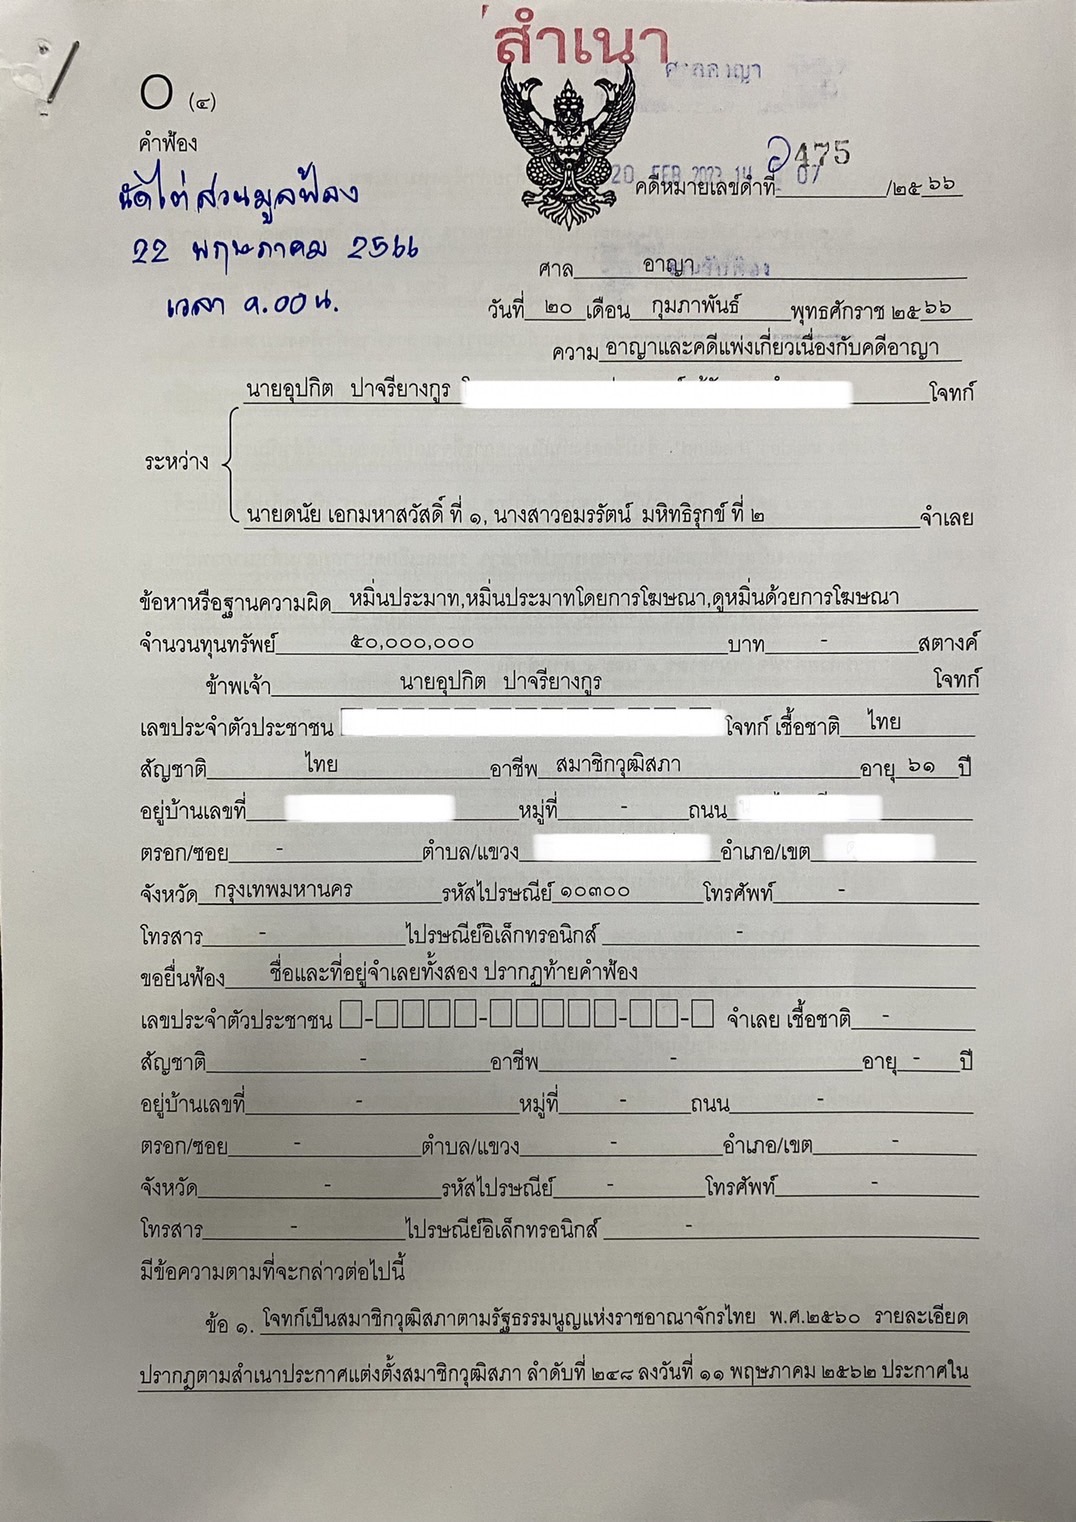 สำเนา
ศาลอาญา
O (๔)
คำฟ้อง
475
20 FEB 2023 14 07
คดีหมายเลขดำที่ /๒๕๖๖
นัดไต่สวนมูลฟ้อง
22 พฤษภาคม 2566
เวลา ๙.00 น.
ศาล อาญา
วันที่ ๒๐ เดือน กุมภาพันธ์ พุทธศักราช ๒๕๖๖
ความ อาญาและคดีแพ่งเกี่ยวเนื่องกับคดีอาญา
นายอุปกิต ปาจรียางกูร โจทก์
ระหว่าง
นายดนัย เอกมหาสวัสดิ์ ที่ ๑, นางสาวอมรรัตน์ มหิทธิรุกข์ ที่ ๒ จำเลย
ข้อหาหรือฐานความผิด หมิ่นประมาท,หมิ่นประมาทโดยการโฆษณา,ดูหมิ่นด้วยการโฆษณา
จำนวนทุนทรัพย์ ๕๐,๐๐๐,๐๐๐ บาท - สตางค์
ข้าพเจ้า นายอุปกิต ปาจรียางกูร โจทก์
เลขประจำตัวประชาชน โจทก์ เชื้อชาติ ไทย
สัญชาติ ไทย อาชีพ สมาชิกวุฒิสภา อายุ ๖๑ ปี
อยู่บ้านเลขที่ หมู่ที่ - ถนน
ตรอก/ซอย - ตำบล/แขวง อำเภอ/เขต
จังหวัด กรุงเทพมหานคร รหัสไปรษณีย์ ๑๐๓๐๐ โทรศัพท์ -
โทรสาร - ไปรษณีย์อิเล็กทรอนิกส์ -
ขอยื่นฟ้อง ชื่อและที่อยู่จำเลยทั้งสอง ปรากฏท้ายคำฟ้อง
เลขประจำตัวประชาชน จำเลย เชื้อชาติ -
สัญชาติ - อาชีพ - อายุ - ปี
อยู่บ้านเลขที่ - หมู่ที่ - ถนน -
ตรอก/ซอย - ตำบล/แขวง - อำเภอ/เขต -
จังหวัด - รหัสไปรษณีย์ - โทรศัพท์ -
โทรสาร - ไปรษณีย์อิเล็กทรอนิกส์ -
มีข้อความตามที่จะกล่าวต่อไปนี้
ข้อ ๑. โจทก์เป็นสมาชิกวุฒิสภาตามรัฐธรรมนูญแห่งราชอาณาจักรไทย พ.ศ.๒๕๖๐ รายละเอียด
ปรากฏตามสำเนาประกาศแต่งตั้งสมาชิกวุฒิสภา ลำดับที่ ๒๔๘ ลงวันที่ ๑๑ พฤษภาคม ๒๕๖๒ ประกาศใน